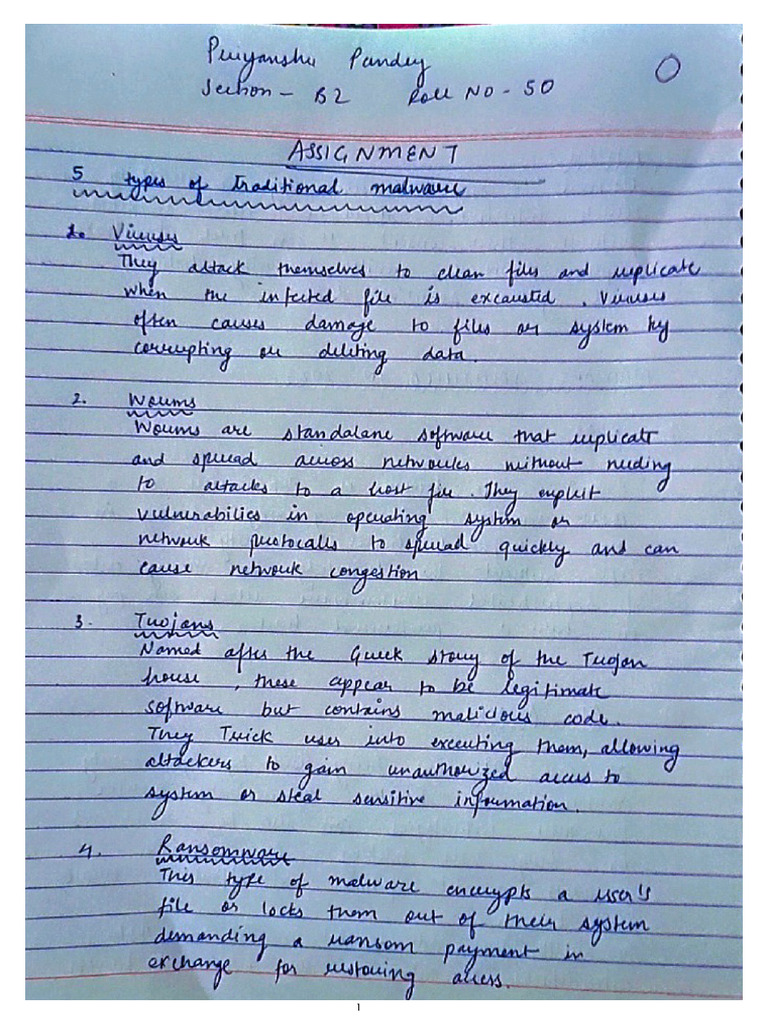 Priyanshu Pandey
O
Section - B2 Roll NO - 50
ASSIGNMENT
5 types of traditional malware
1. Viruses
They attack themselves to clean files and replicate
when the infected file is excausted. Viruses
often causes damage to files or system by
corrupting or deleting data.
2. Worms
Worms are standalane software that replicate
and spread across networks without needing
to attacks to a host file. They exploit
vulnerabilies in operating system or
network protocalls to spread quickly and can
cause network congestion
3. Trojans
Named after the Greek story of the Trojan
house, these appear to be legitimate
software but contains malicious code.
They Trick user into executing them, allowing
attackers to gain unauthorized access to
system or steal sensitive information.
4. Ransomware
This type of malware encrypts a user's
file or locks them out of their system
demanding a ransom payment in
exchange for restoring access.
1